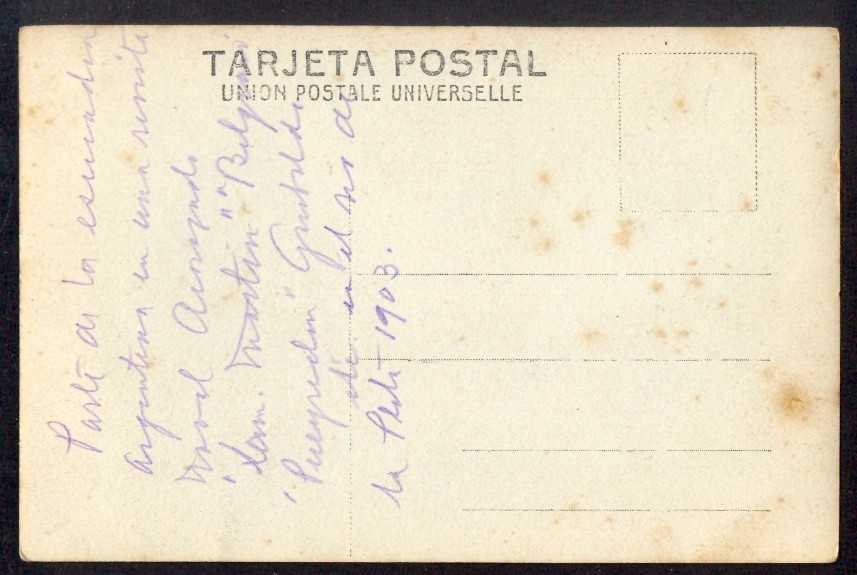 TARJETA POSTAL
UNION POSTALE UNIVERSELLE
Parte de la escuadra
Argentina en una revista
Naval Acorazado
"Sanm. Martin" "Belgrano"
"Pueyredon" Garibaldi
etc. en el rio de
la Plata 1903.